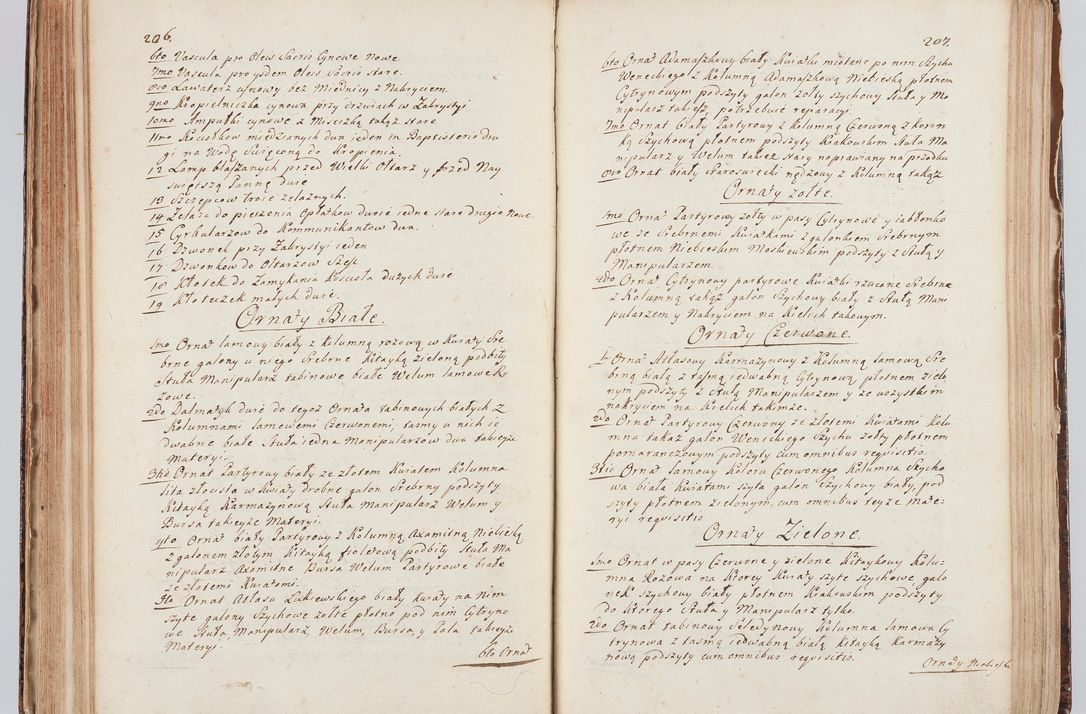 206.
6to Vascula pro Oleis Sacris Cynowe Nowe
7mo Vascula pro ysdem Oleis Sacris stare.
8vo Lawaterz cynowy bez Miednicy z Nakryciem.
9no Kropielniczka cynowa przy drzwiach w Zakrystyi
10mo Ampułki cynowe z Miseczką takąż stare
11mo Kociołkow miedzianych dwa ieden in Baptisterio dru
gi na Wodę Swięconą do Kropienia.
12 Lamp blaszanych przed Wielki Ołtarz y przed Nay
swiętszą Panną dwie
13 Szczepcow troie żelaznych.
14 Żelaza do pieczenia Opłatkow dwoie iedne stare drugie Nowe.
15 Cyrkularzow do Kommunikantow dwa.
16 Dzwonek przy Zakrystyi ieden
17 Dzwonkow do Ołtarzow Szesc
18 Kłotek do Zamykania Koscioła dużych dwie
19 Kłoteczek małych dwie.
Ornaty Białe.
1mo Ornat lamowy biały z kolumną rozową w Kwiaty Sre
brne galony u niego Srebrne Kitayką zieloną podbity
Stuła Manipularz tabinowe białe Welum lamowe R
zowe.
2do Dalmatyk dwie do tegoż Ornata tabinowych białych z
Kolumnami lamowemi Czerwonemi, tasmy u nich ie
dwabne białe Stuła iedna Manipularzow dwa takieyże
Materyi.
3tio Ornat Partyrowy biały ze złotem Kwiatem Kolumna
lita złocista w Kwiaty drobne galon Srebrny podszyty
Kitayką Karmazynową Stuła Manipularz Welum y
Bursa takieyże Materyi.
4to Ornat biały Partyrowy z Kolumną Axamitną Niebieską
z galonem złotym Kitayką fioletową podbity Stuła Ma
nipularz Axamitne Bursa Welum Partyrowe białe
ze złotemi Kwiatami.
5to Ornat Atłasu Łukiewskiego biały kwiaty na nim
szyte galony Szychowe zołte płotno pod nim Cytryno
we Stuła Manipularz, Welum, Bursa, y Pala takieyże
Materyi.
6to Ornat
207.
6to Ornat Adamaszkowy biały Kwiatki miotane po nim Szychu
Weneckiego z Kolumną Adamaszkową Niebieską płotnem
Cytrynowym podszyty galon żołty szychowy Stuła y Ma
nipularz takież potrzebuie reparacyi.
7mo Ornat biały Partyrowy z Kolumną Czerwoną z koron
ką Szychową płotnem podszyty Krakowskim Stuła Ma
nipularz y Welum takież stary naprawiany na przodku
8vo Ornat biały staroswiecki nędzowy z Kolumną takąż
Ornaty żołte.
1mo Ornat Partyrowy zołty w pasy Cytrynowe y iabłonko
we ze Srebrnemi Kwiatkami z galonkiem Srebrnym
płotnem Niebieskim Moskiewskim podszyty z Stułą y
Manipularzem
2do Ornat Cytrynowy partyrowe Kwiatki rzucane Srebrne
z Kolumną takąż galon Szychowy biały z Stułą Mani
pularzem y Nakryciem na Kielich takowym.
Ornaty Czerwone.
1. Ornat Atłasowy Karmazynowy z Kolumną lamową Sre
brną białą z tasmą iedwabną Cytrynową płotnem zielo
nym podszyty z Stułą Manipularzem y ze wszystkim
nakryciem na Kielich takimże.
2do Ornat Partyrowy Czerwony ze złotemi Kwiatami Kolu
mna takaż galon Weneckiego Szychu zołty płotnem
pomaranczowym podszyty cum omnibus requisitis.
3tio Ornat lamowy Koloru Czerwonego Kolumna Szycho
wa biała kwiatami szyta galon Szychowy biały pod
szyty płotnem zielonym, cum omnibus teyże mate-
ryi requisitis
Ornaty Zielone.
1mo Ornat w pasy Czerwone y zielone Kitaykowy Kolu:
mna Rozowa na Ktorey Kwiaty szyte szychowe galo
nek szychowy biały płotnem Krakowskim podszyty
do ktorego Stuła y Manipularz tylko.
2do Ornat tabinowy Seledynowy Kolumna lamowa Cy
trynowa z tasmą iedwabną białą kitayką Karmazy
nową podszyty cum omnibus requisitis.
Ornaty Niebiesk